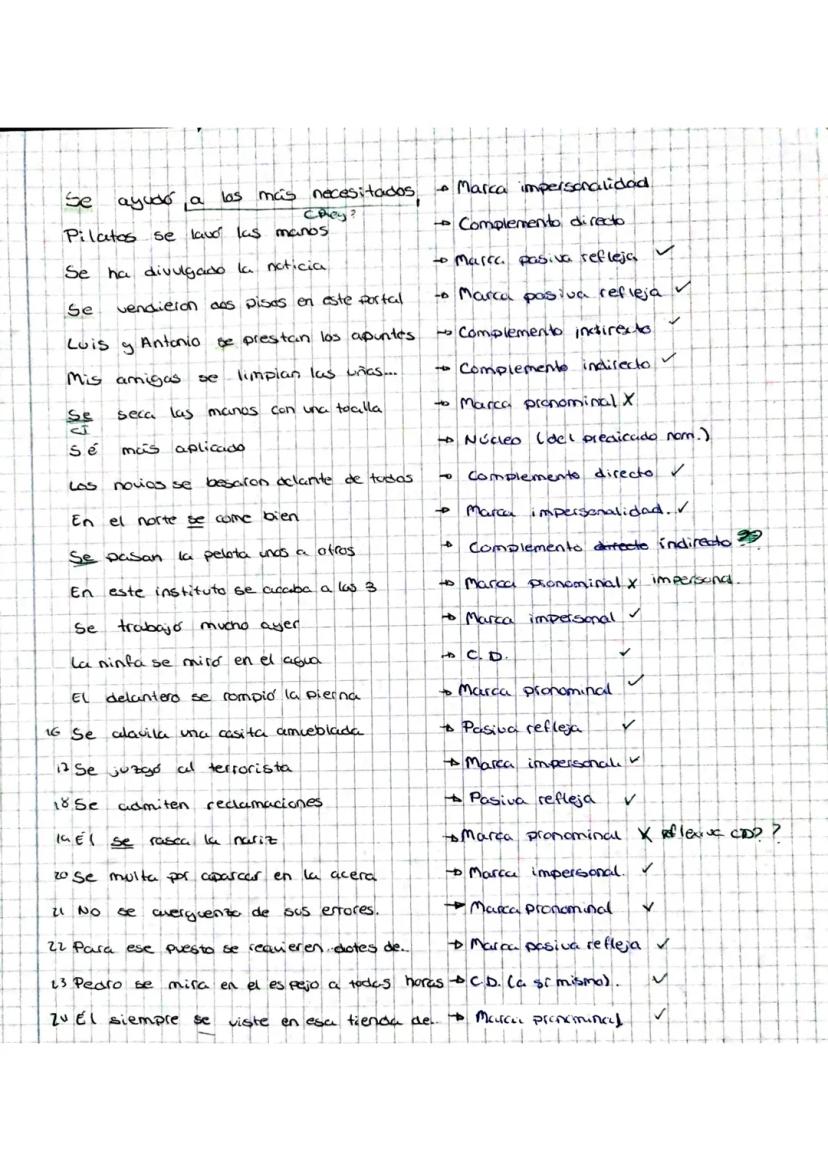 Se ayudó a los más necesitados → Marca impersonalidad
CReg?
Pilatos se lavó las manos → Complemento directo
Se ha divulgado la noticia → Marca pasiva refleja ✓
Se vendieron dos pisos en este portal → Marca pasiva refleja ✓
Luis y Antonio se prestan los apuntes → Complemento indirecto ✓
Mis amigas se limpian las uñas... → Complemento indirecto ✓
Se seca las manos con una toalla → Marca pronominal X
CI
Sé más aplicado → Núcleo (del predicado nom.)
Los novios se besaron delante de todos → Complemento directo ✓
En el norte se come bien → Marca impersonalidad. ✓
Se pasan la pelota unos a otros → Complemento directo indirecto ??
En este instituto se acaba a las 3 → Marca pronominal x impersonal.
Se trabajó mucho ayer → Marca impersonal ✓
La ninfa se miró en el agua → C.D. ✓
El delantero se rompió la pierna → Marca pronominal ✓
16 Se alquila una casita amueblada → Pasiva refleja ✓
17 Se juzgó al terrorista → Marca impersonal ✓
18 Se admiten reclamaciones → Pasiva refleja ✓
19 Él se rasca la nariz → Marca pronominal X reflexivo CD? ?
20 Se multa por aparcar en la acera → Marca impersonal. ✓
21 No se averguenza de sus errores. → Marca pronominal ✓
22 Para ese puesto se requieren dotes de.. → Marca pasiva refleja ✓
23 Pedro se mira en el espejo a todas horas → C.D. (a sí mismo). ✓
24 Él siempre se viste en esa tienda de.. → Marca pronominal ✓